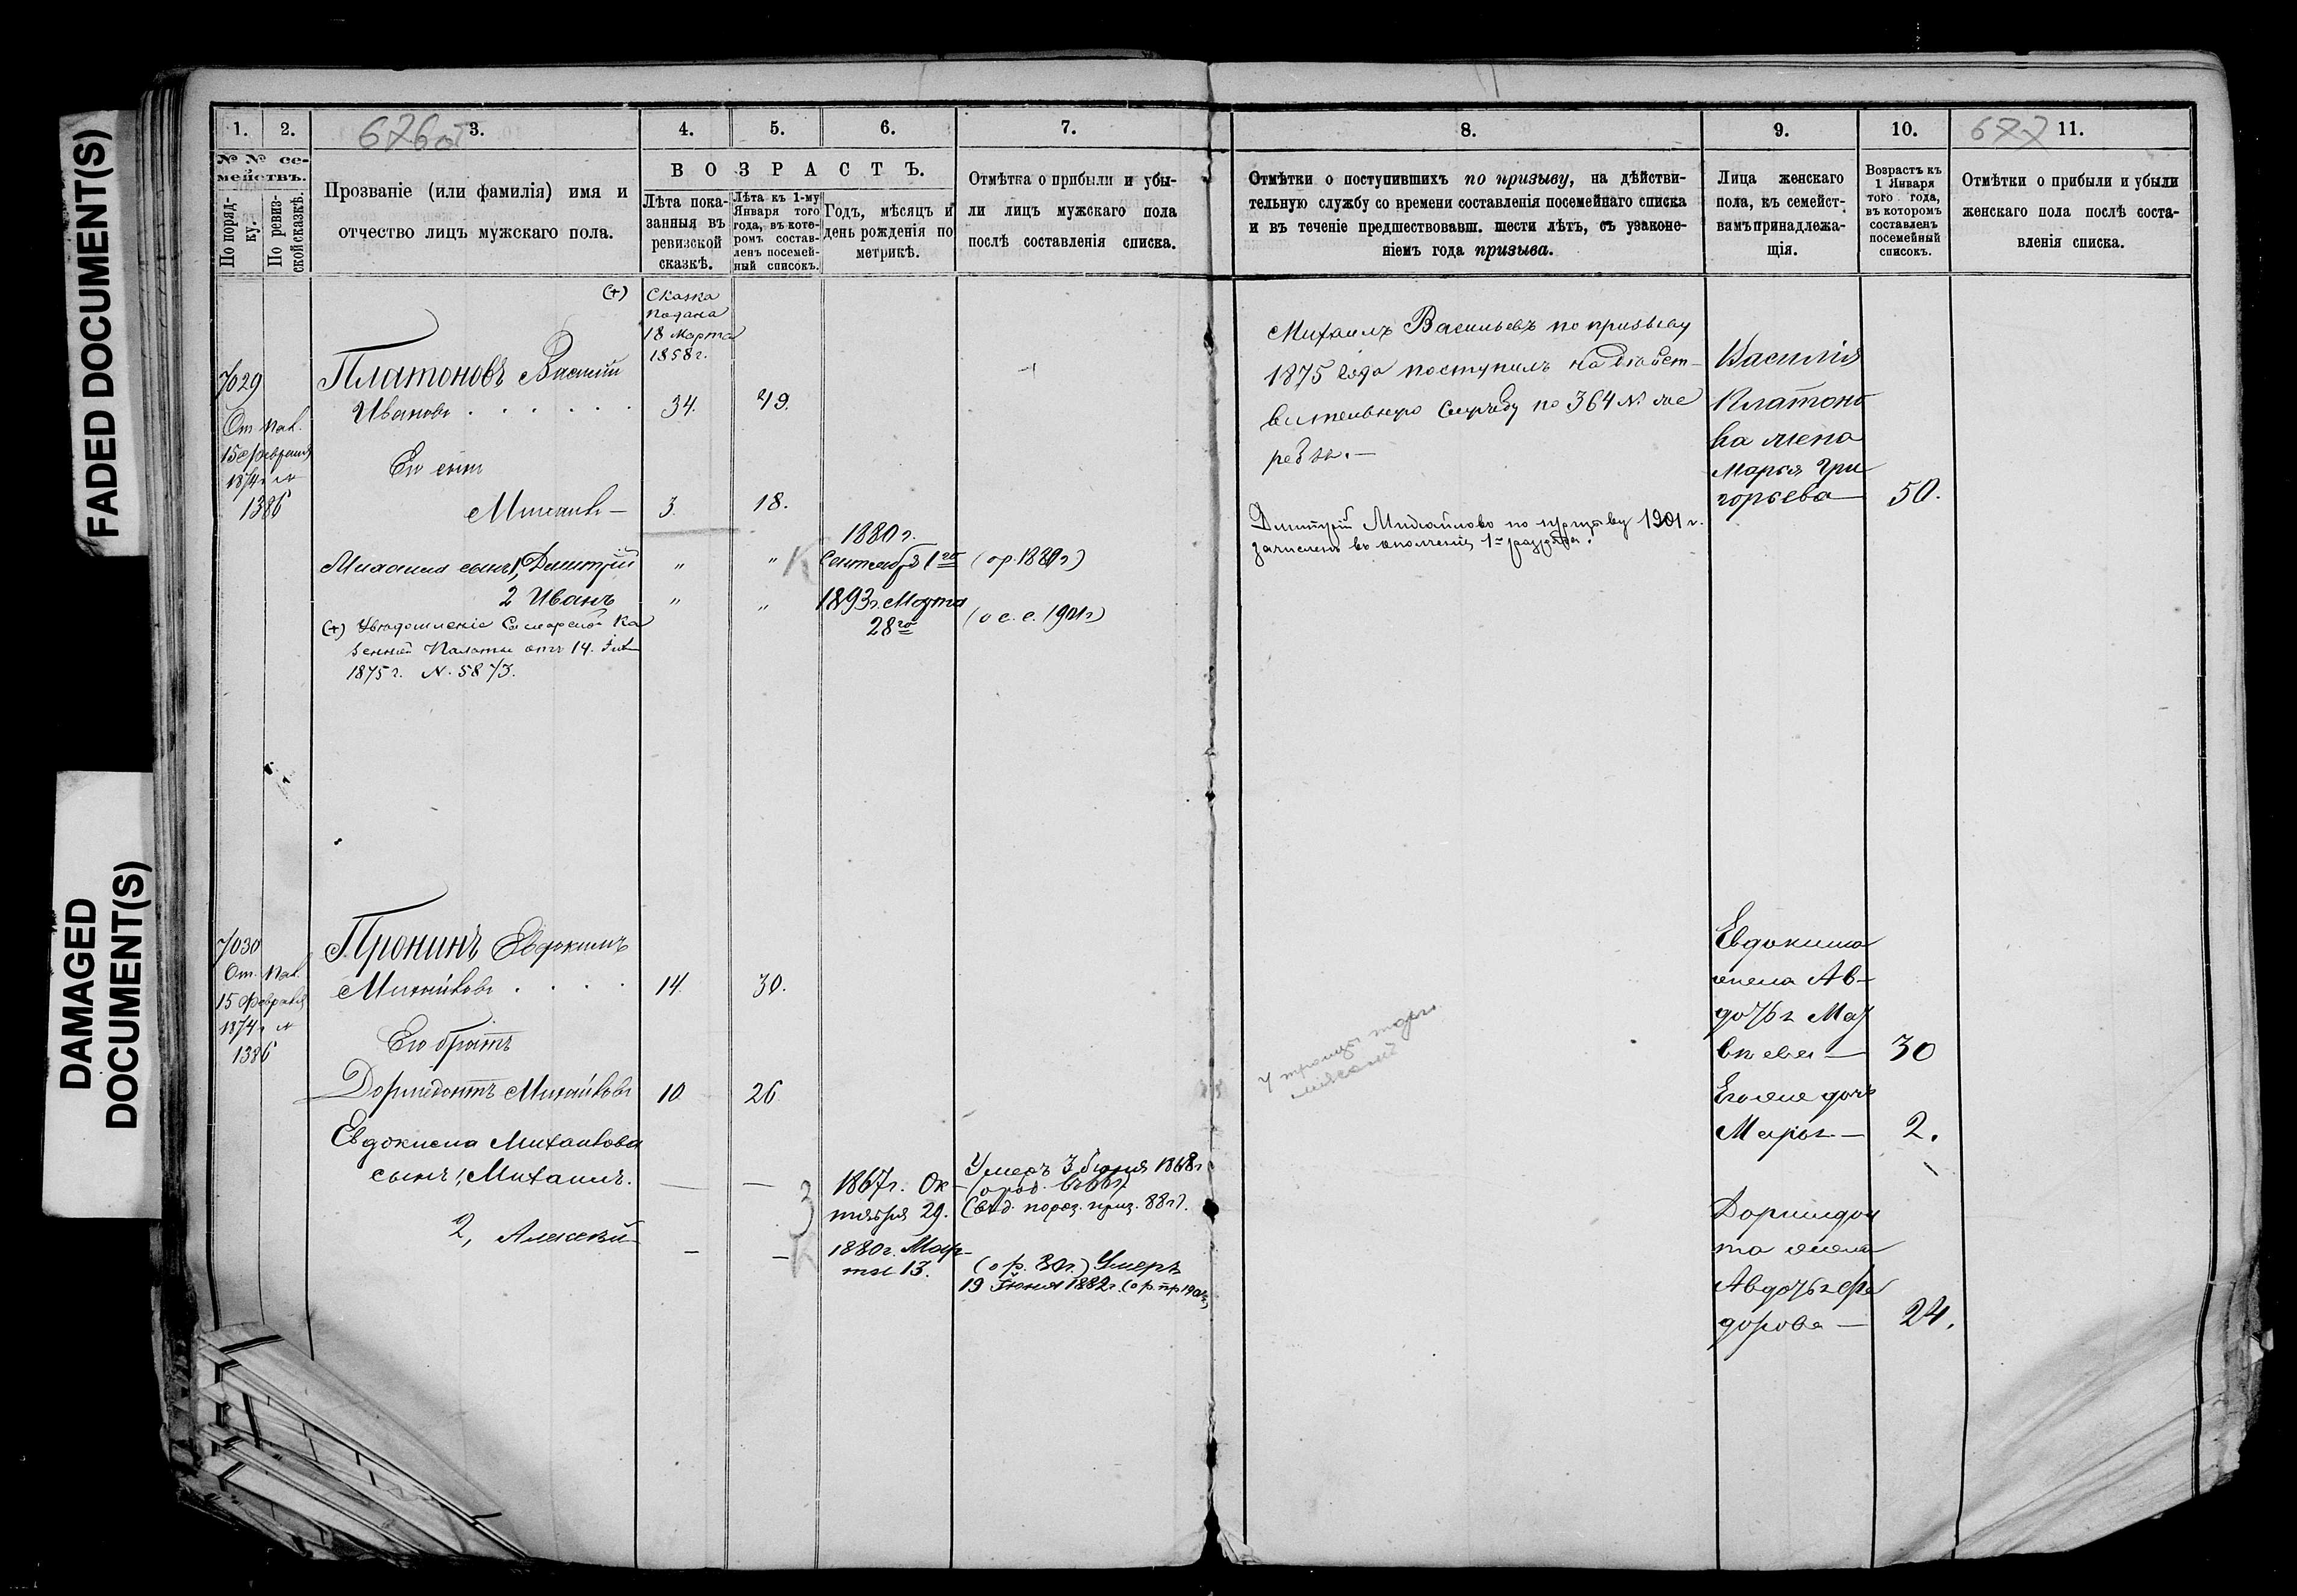 FADED DOCUMENT(S)
DAMAGED
DOCUMENT(S)
1.
2.
3.
676об
4.
5.
6.
7.
№ № се-
мействъ.
По поряд-
ку.
По ревиз-
ской сказкѣ.
Прозваніе (или фамилія) имя и
отчество лицъ мужскаго пола.
ВОЗРАСТЪ.
Лѣта пока-
занныя въ
ревизской
сказкѣ.
Лѣта къ 1-му
Января того
года, въ кото-
ромъ состав-
ленъ посемей-
ный списокъ.
Годъ, мѣсяцъ и
день рожденія по
метрикѣ.
Отмѣтка о прибыли и убы-
ли лицъ мужскаго пола
послѣ составленія списка.
(+)
Сказка
подана
18 Марта
1858 г.
7029
От пал.
15 февраля
1874 г №
1386
Платоновъ Василій
Ивановъ
34.
49.
Его сынъ
Михаилъ —
3.
18.
Михаила сынъ 1, Димитрій
"
"
К
1880 г.
Сентября 1го
(ор. 1880 г)
2 Иванъ
"
"
1893 г. Марта
28го
(о с. с. 1901 г)
(+) Увѣдомленіе Самарской Ка
зенной Палаты отъ 14
1875 г. N. 5873.
7030
От. Пал.
15 Февраля
1874 г №
1386
Пронинъ Евдокимъ
Михайловъ
14.
30.
Его братъ
Дормидонтъ Михайловъ
10
26
Евдокима Михайлова
сынъ 1, Михаилъ.
—
—
З
1867 г. Ок-
тября 29.
Умеръ 1868 г
2, Алексѣй
—
—
К
1880 г. Мар-
та 13.
(о р. 80 г.) Умеръ
19 Іюня 1882 г.
8.
9.
10.
677
11.
Отмѣтки о поступившихъ по призыву, на дѣйстви-
тельную службу со времени составленія посемейнаго списка
и въ теченіе предшествовавш. шести лѣтъ, съ узаконе-
ніемъ года призыва.
Лица женскаго
пола, къ семейст-
вамъ принадлежа-
щія.
Возрастъ къ
1 Января
того года,
въ которомъ
составленъ
посемейный
списокъ.
Отмѣтки о прибыли и убыли
женскаго пола послѣ соста-
вленія списка.
Михаилъ Васильевъ по призыву
1875 года поступилъ на дѣйст-
вительную службу по 364 № же
ребья. —
Димитрій Михайловъ по призыву 1901 г.
зачисленъ въ ополченіе 1го разряда.
Василія
Платоно
ва жена
Марья Гри
горьева —
50.
Евдокима
жена Ав-
дотья Мат
вѣева —
30
Его же дочь
Марья —
2.
Дормидон
та жена
Авдотья Ѳе
дорова —
24.